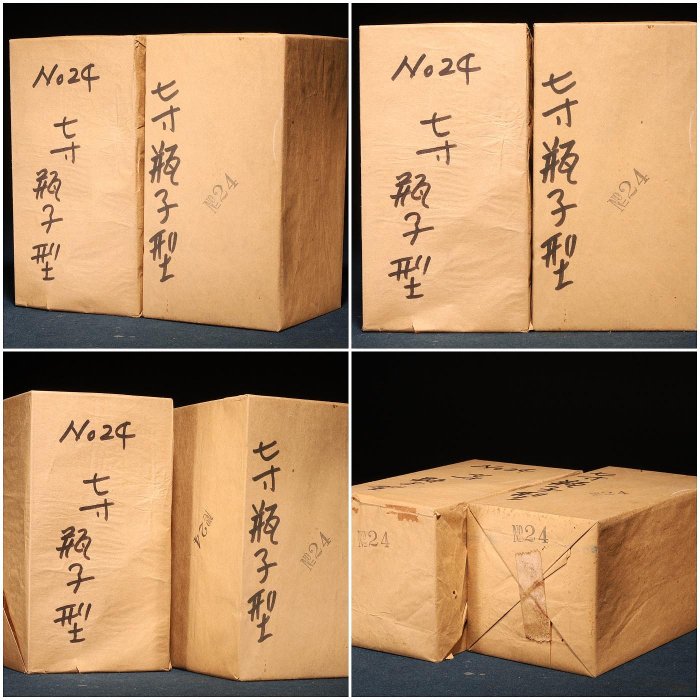 No24
七寸
瓶子型
七寸瓶子型
№24
No24
七寸
瓶子型
七寸瓶子型
№24
No24
七寸
瓶子型
№24
七寸瓶子型
№24
№24
№24
№24